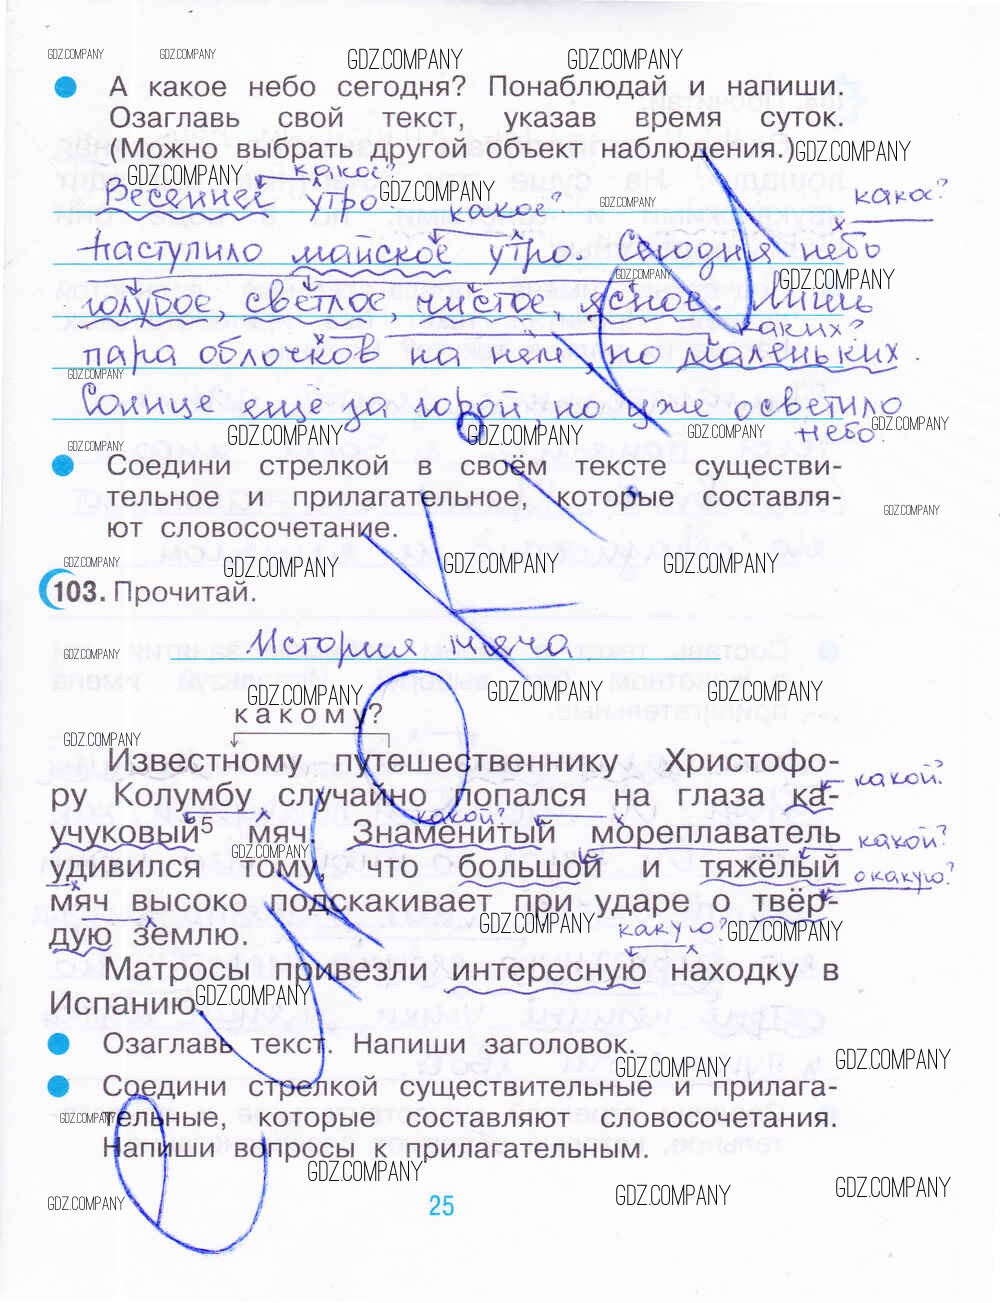 GDZ.COMPANY GDZ.COMPANY GDZ.COMPANY GDZ.COMPANY
А какое небо сегодня? Понаблюдай и напиши.
Озаглавь свой текст, указав время суток.
(Можно выбрать другой объект наблюдения.) GDZ.COMPANY
GDZ.COMPANY какое?
Весеннее утро GDZ.COMPANY GDZ.COMPANY какое?
какое?
Наступило майское утро. Сегодня небо
GDZ.COMPANY GDZ.COMPANY
голубое, светлое, чистое, ясное. Лишь
каких?
пара облочков на нем, но маленьких.
GDZ.COMPANY
Солнце ещё за горой, но уже осветило
GDZ.COMPANY GDZ.COMPANY GDZ.COMPANY GDZ.COMPANY GDZ.COMPANY
небо.
Соедини стрелкой в своём тексте существи-
тельное и прилагательное, которые составля-
ют словосочетание.
GDZ.COMPANY
GDZ.COMPANY GDZ.COMPANY GDZ.COMPANY GDZ.COMPANY
103. Прочитай.
История мяча
GDZ.COMPANY
GDZ.COMPANY GDZ.COMPANY GDZ.COMPANY
какому?
GDZ.COMPANY
Известному путешественнику Христофо-
ру Колумбу случайно попался на глаза ка- какой?
какой?
учуковый5 мяч. Знаменитый мореплаватель какой?
GDZ.COMPANY
удивился тому, что большой и тяжёлый о какую?
мяч высоко подскакивает при ударе о твёр-
GDZ.COMPANY какую? GDZ.COMPANY
дую землю.
Матросы привезли интересную находку в
Испанию. GDZ.COMPANY
Озаглавь текст. Напиши заголовок.
GDZ.COMPANY GDZ.COMPANY
Соедини стрелкой существительные и прилага-
GDZ.COMPANY
тельные, которые составляют словосочетания.
Напиши вопросы к прилагательным.
GDZ.COMPANY
GDZ.COMPANY 25 GDZ.COMPANY GDZ.COMPANY